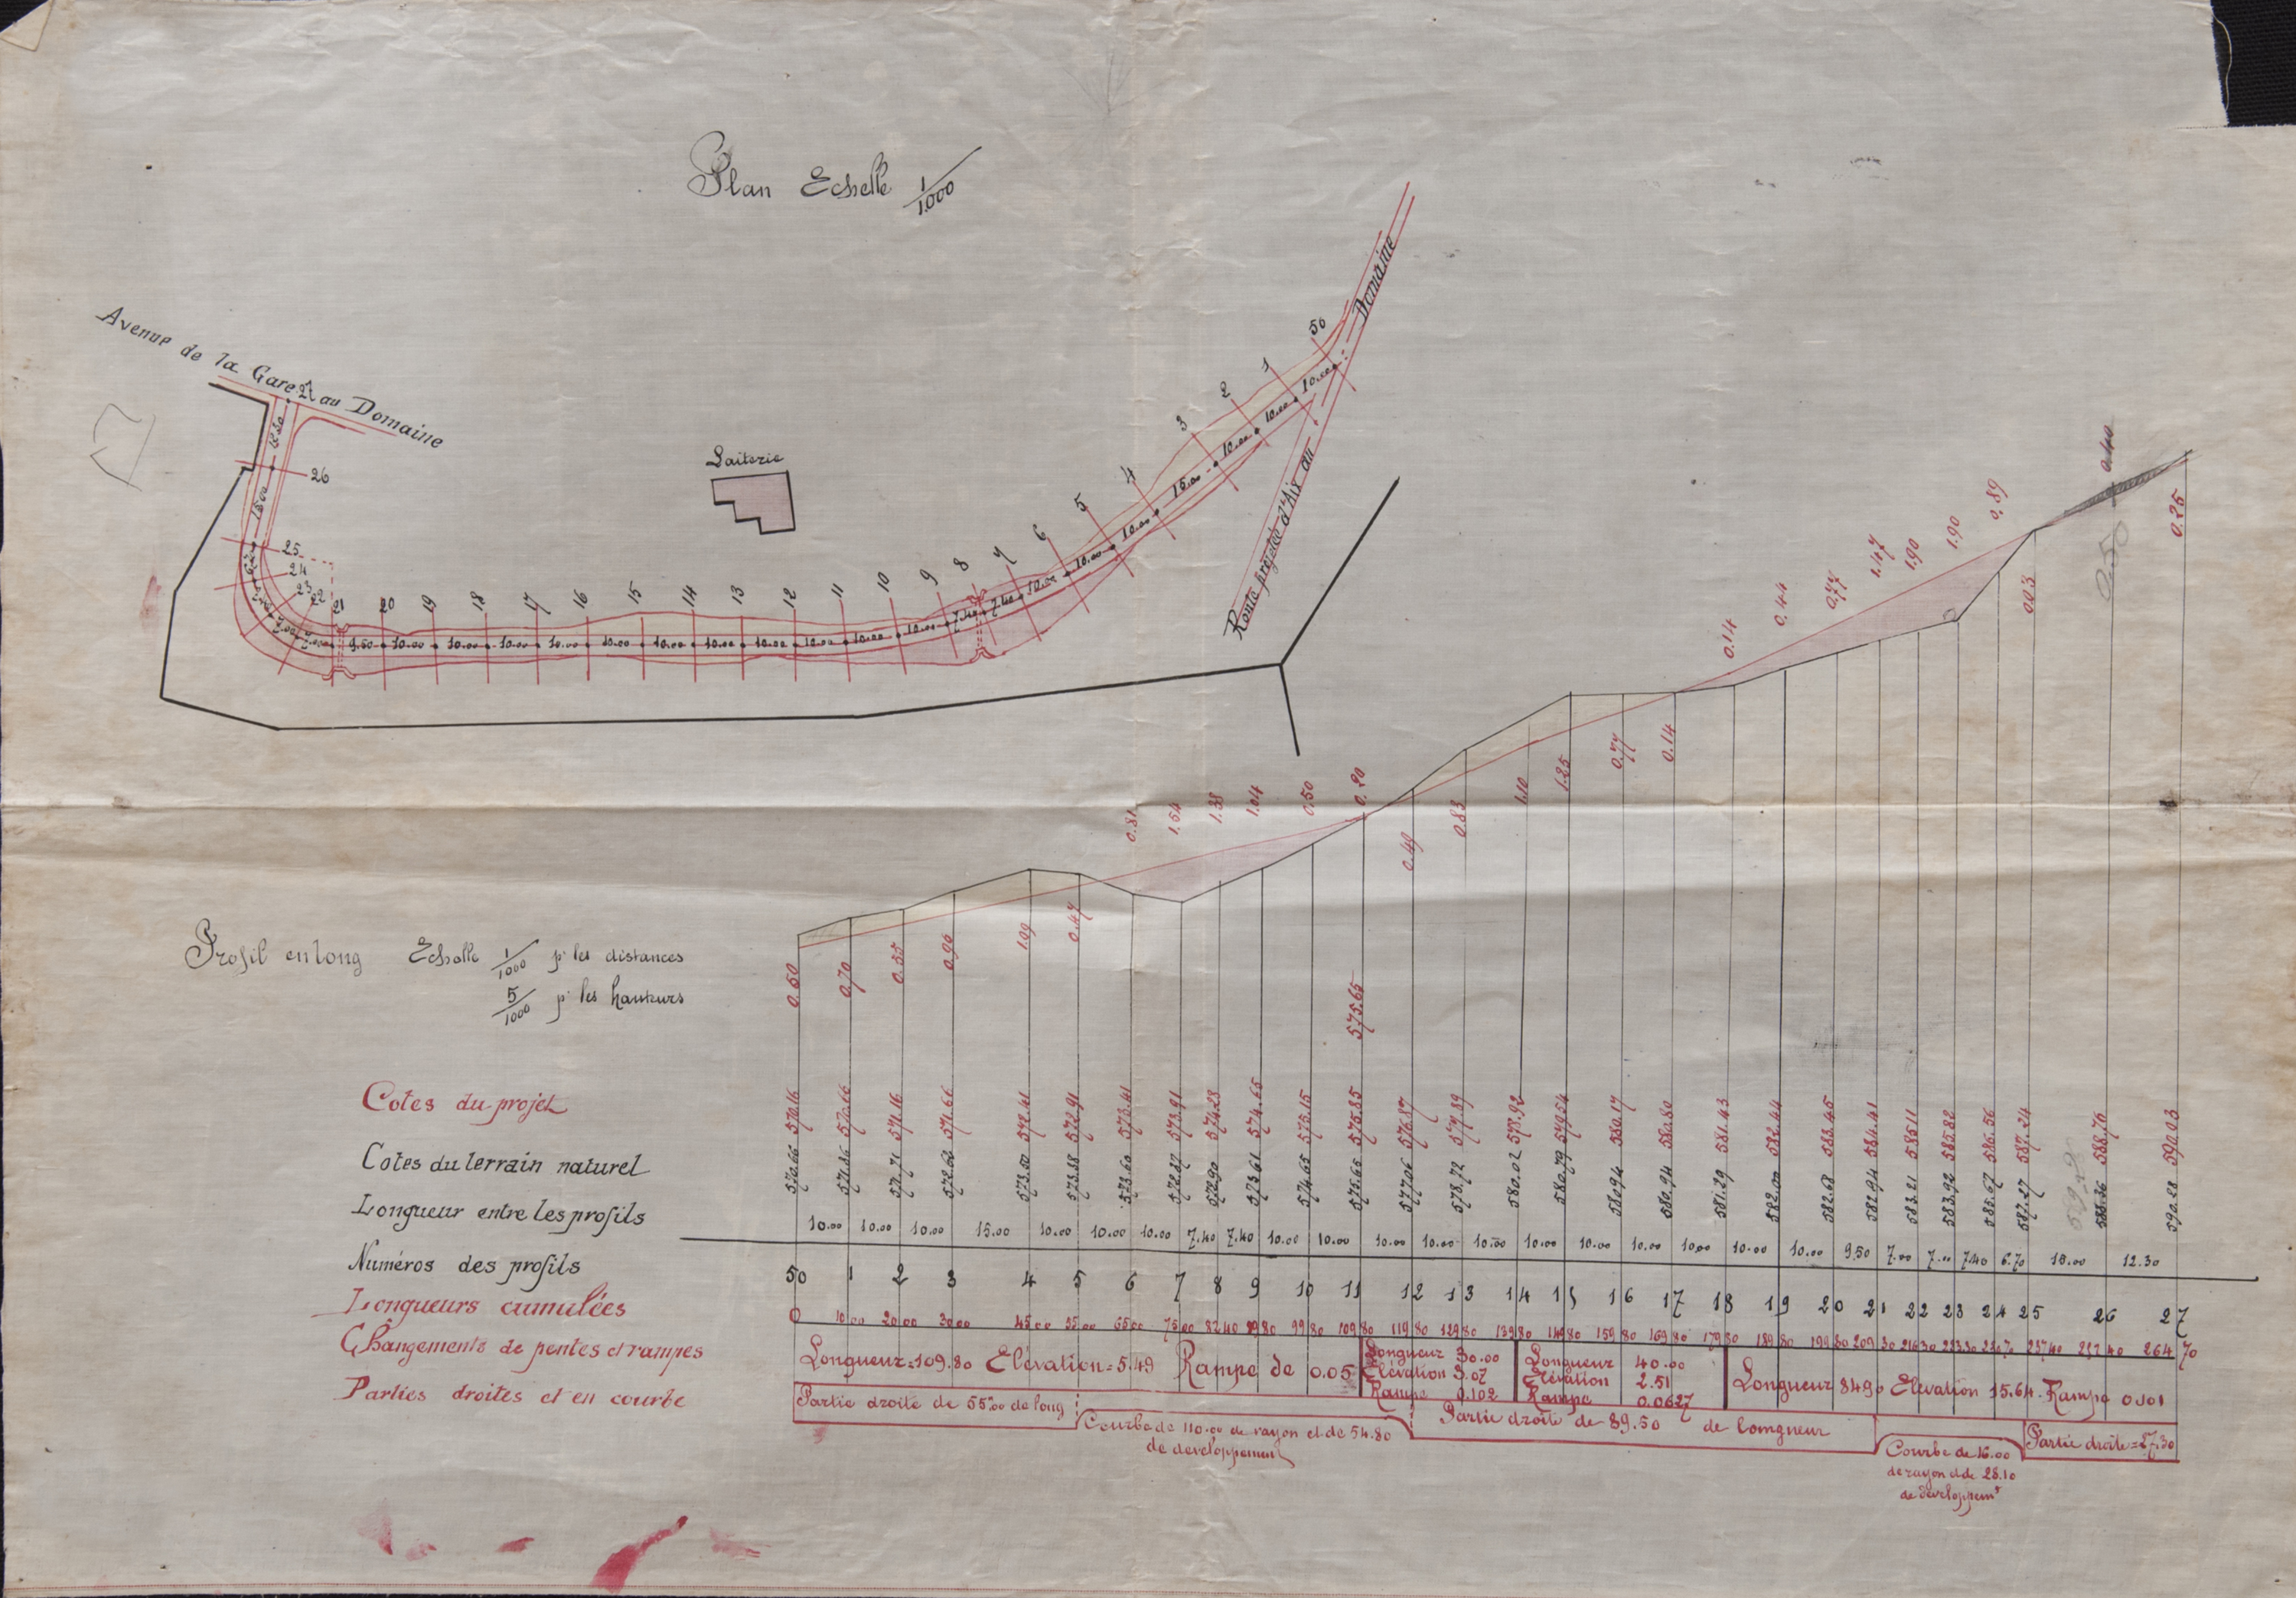 Plan Echelle 1/1000
Avenue de la Gare au Domaine
27
12.30
26
15.00
25
24
23
22
21
20
19
18
17
16
15
14
13
12
11
10
9
8
7
6
5
4
3
2
1
50
7.00
7.00
9.50
10.00
10.00
10.00
10.00
10.00
10.00
10.00
10.00
10.00
10.00
10.00
7.40
7.40
10.00
10.00
10.00
15.00
10.00
10.00
10.00
Laiterie
Route projetée d'Aix au Domaine
Profil en long Echelle 1/1000 pr les distances
5/1000 pr les hauteurs
0.50 0.70 0.55 0.96 1.09 0.47 0.81 1.54 1.38 1.04 0.50 0.20 0.49 0.83 1.10 1.25 0.77 0.14 0.14 0.44 0.77 1.47 1.90 1.90 0.89 0.03 0.40 0.25
0.50
575.65
Cotes du projet
570.16 570.66 571.16 571.66 572.41 572.91 573.41 573.91 574.28 574.65 575.15 575.85 576.87 577.89 578.92 579.54 580.17 580.80 581.43 582.44 583.45 584.41 585.11 585.82 586.56 587.24 588.76 590.03
Cotes du terrain naturel
570.66 571.36 571.71 572.62 573.50 573.38 572.60 572.37 572.90 573.61 574.65 575.65 577.06 578.72 580.02 580.79 580.94 580.94 581.29 582.00 582.68 582.94 583.21 583.92 585.67 587.27 588.36 590.28
Longueur entre les profils
10.00 10.00 10.00 15.00 10.00 10.00 10.00 7.40 7.40 10.00 10.00 10.00 10.00 10.00 10.00 10.00 10.00 10.00 10.00 10.00 9.50 7.00 7.00 7.40 6.70 15.00 12.30
Numéros des profils
50 1 2 3 4 5 6 7 8 9 10 11 12 13 14 15 16 17 18 19 20 21 22 23 24 25 26 27
Longueurs cumulées
0 10.00 20.00 30.00 45.00 55.00 65.00 75.00 82.40 89.80 99.80 109.80 119.80 129.80 139.80 149.80 159.80 169.80 179.80 189.80 199.80 209.30 216.30 223.30 230.70 237.40 252.40 264.70
Changements de pentes et rampes
Longueur=109.80 Elévation=5.49 Rampe de 0.05
Longueur 30.00
Elévation 3.07
Rampe 0.102
Longueur 40.00
Elévation 2.51
Rampe 0.0627
Longueur 84.90 Elévation 15.64. Rampe 0.101
Parties droites et en courbe
Partie droite de 55m00 de long
Courbe de 110.00 de rayon et de 54.80
de developpement
Partie droite de 89.50 de longueur
Courbe de 16.00
de rayon et de 28.10
de developpemt
Partie droite=27.30